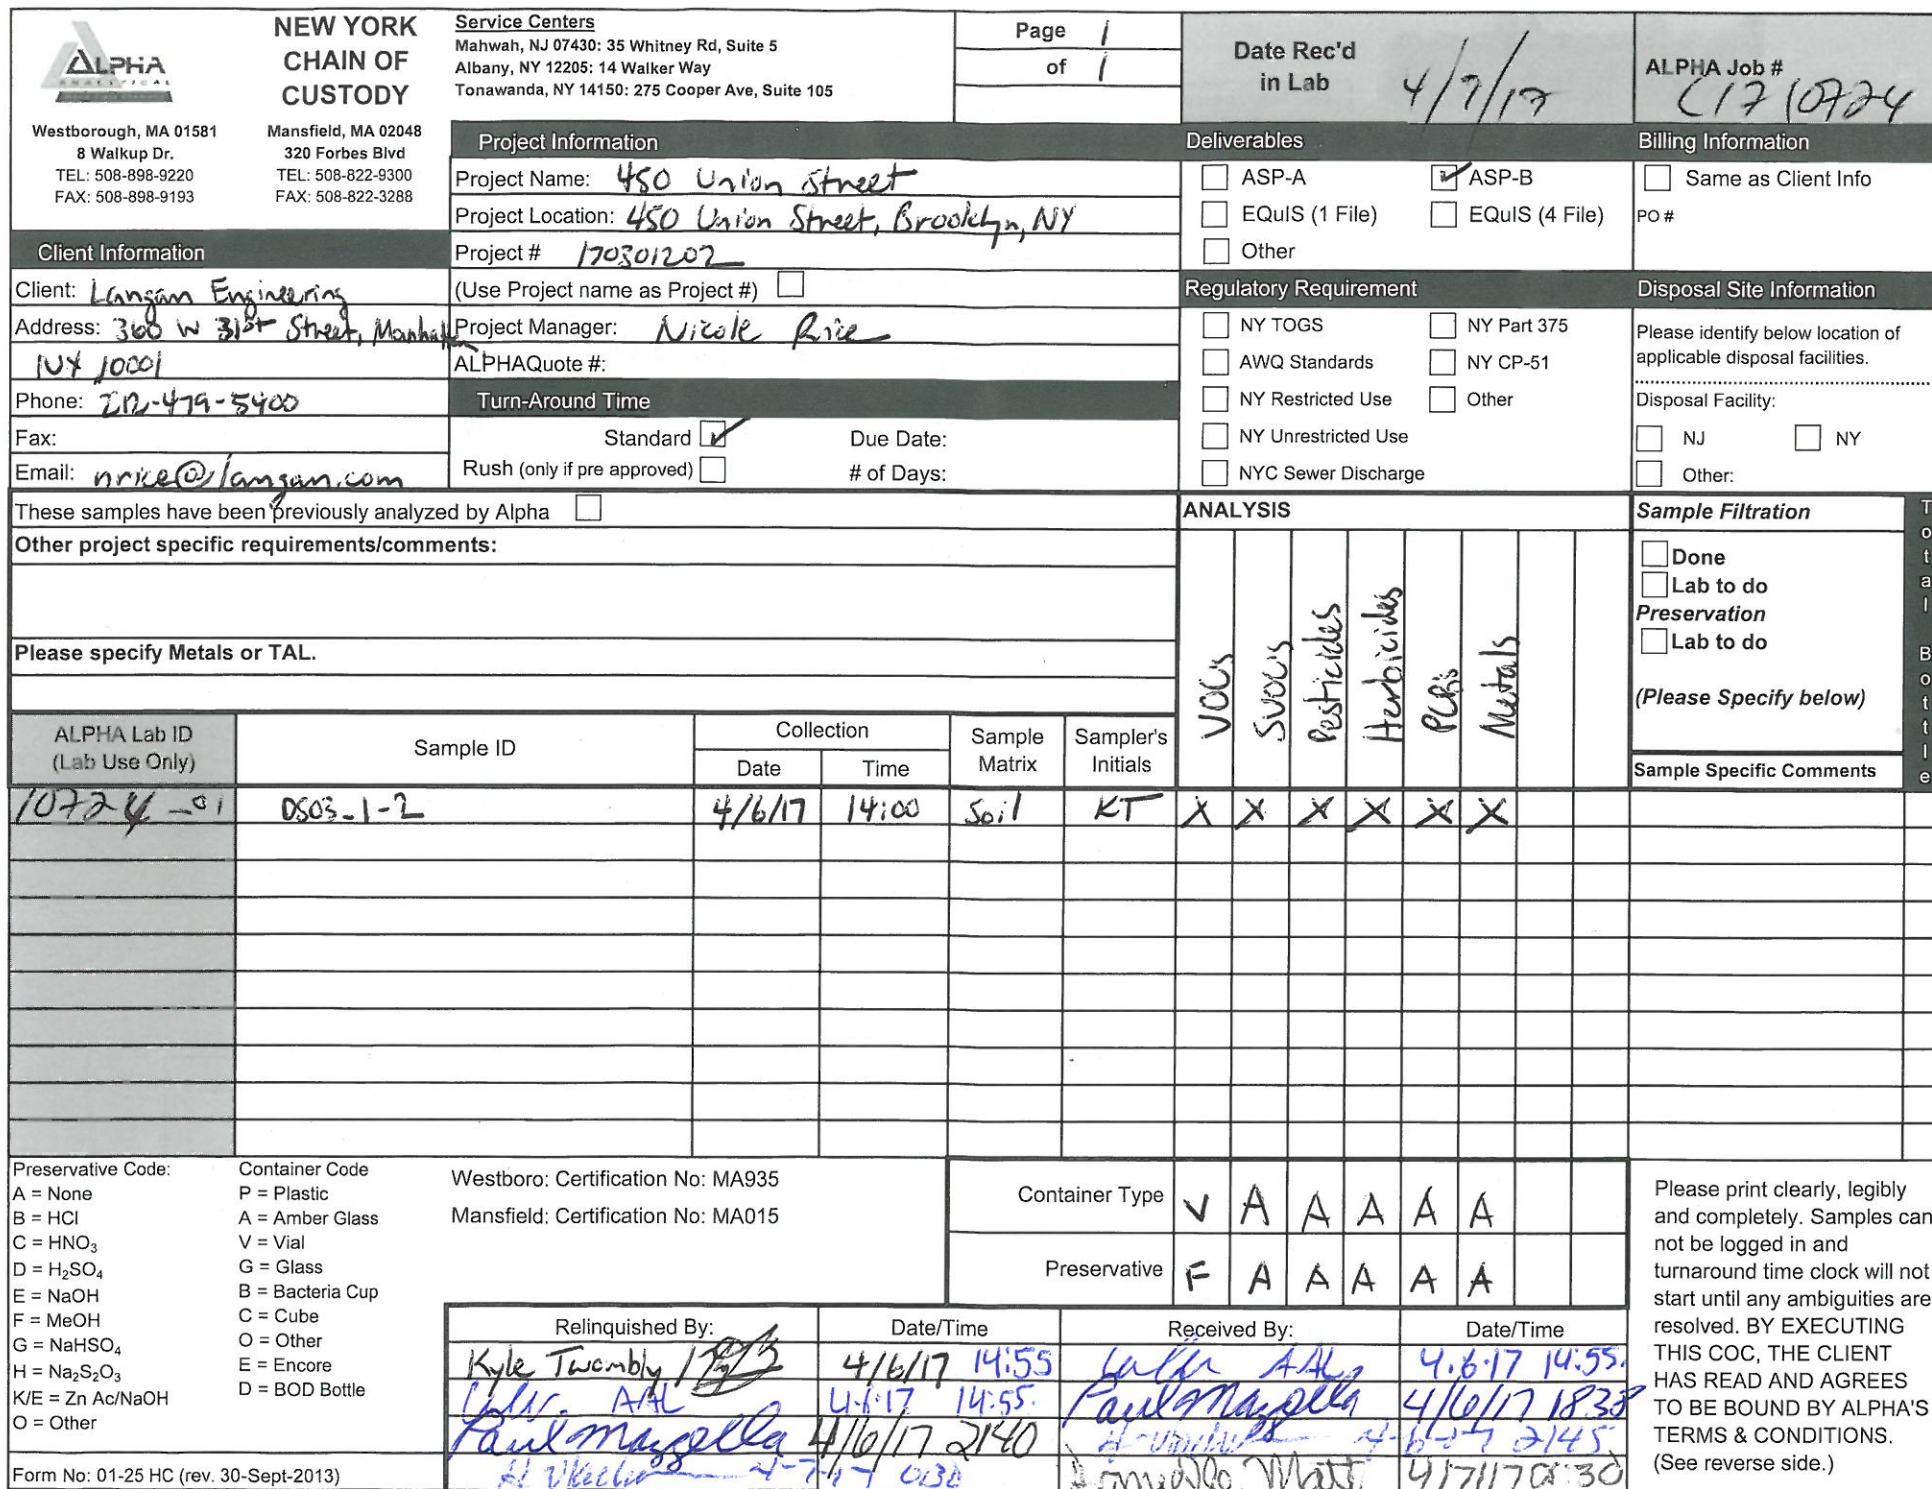 ALPHA
ANALYTICAL
NEW YORK
CHAIN OF
CUSTODY
Westborough, MA 01581
8 Walkup Dr.
TEL: 508-898-9220
FAX: 508-898-9193
Mansfield, MA 02048
320 Forbes Blvd
TEL: 508-822-9300
FAX: 508-822-3288
Service Centers
Mahwah, NJ 07430: 35 Whitney Rd, Suite 5
Albany, NY 12205: 14 Walker Way
Tonawanda, NY 14150: 275 Cooper Ave, Suite 105
Page 1
of 1
Date Rec'd
in Lab 4/7/17
ALPHA Job #
L1710724
Project Information
Project Name: 450 Union Street
Project Location: 450 Union Street, Brooklyn, NY
Project # 170301202
(Use Project name as Project #)
Project Manager: Nicole Rice
ALPHAQuote #:
Turn-Around Time
Standard ✓ Due Date:
Rush (only if pre approved) # of Days:
Client Information
Client: Langan Engineering
Address: 360 W 31st Street, Manhattan
NY 10001
Phone: 212-479-5400
Fax:
Email: nrice@langan.com
Deliverables
ASP-A ✓ ASP-B
EQuIS (1 File) EQuIS (4 File)
Other
Regulatory Requirement
NY TOGS NY Part 375
AWQ Standards NY CP-51
NY Restricted Use Other
NY Unrestricted Use
NYC Sewer Discharge
Billing Information
Same as Client Info
PO #
Disposal Site Information
Please identify below location of
applicable disposal facilities.
Disposal Facility:
NJ NY
Other:
These samples have been previously analyzed by Alpha
Other project specific requirements/comments:
Please specify Metals or TAL.
ANALYSIS
VOCs
SVOCs
Pesticides
Herbicides
PCBs
Metals
Sample Filtration
Done
Lab to do
Preservation
Lab to do
(Please Specify below)
Sample Specific Comments
Total Bottle
ALPHA Lab ID
(Lab Use Only)
Sample ID
Collection
Date Time
Sample
Matrix
Sampler's
Initials
10724-01 DS03_1-2 4/6/17 14:00 Soil KT X X X X X X
Preservative Code:
A = None
B = HCl
C = HNO3
D = H2SO4
E = NaOH
F = MeOH
G = NaHSO4
H = Na2S2O3
K/E = Zn Ac/NaOH
O = Other
Container Code
P = Plastic
A = Amber Glass
V = Vial
G = Glass
B = Bacteria Cup
C = Cube
O = Other
E = Encore
D = BOD Bottle
Westboro: Certification No: MA935
Mansfield: Certification No: MA015
Container Type V A A A A A
Preservative F A A A A A
Relinquished By: Date/Time Received By: Date/Time
Kyle Twombly 4/6/17 14:55 AAL 4.6.17 14:55.
AAL 4.6.17 14:55. Paul Mazzella 4/6/17 1838
Paul Mazzella 4/6/17 2140 4-6-17 2145
4-7-17 0130 Matt 4/7/17 01:30
Please print clearly, legibly
and completely. Samples can
not be logged in and
turnaround time clock will not
start until any ambiguities are
resolved. BY EXECUTING
THIS COC, THE CLIENT
HAS READ AND AGREES
TO BE BOUND BY ALPHA'S
TERMS & CONDITIONS.
(See reverse side.)
Form No: 01-25 HC (rev. 30-Sept-2013)